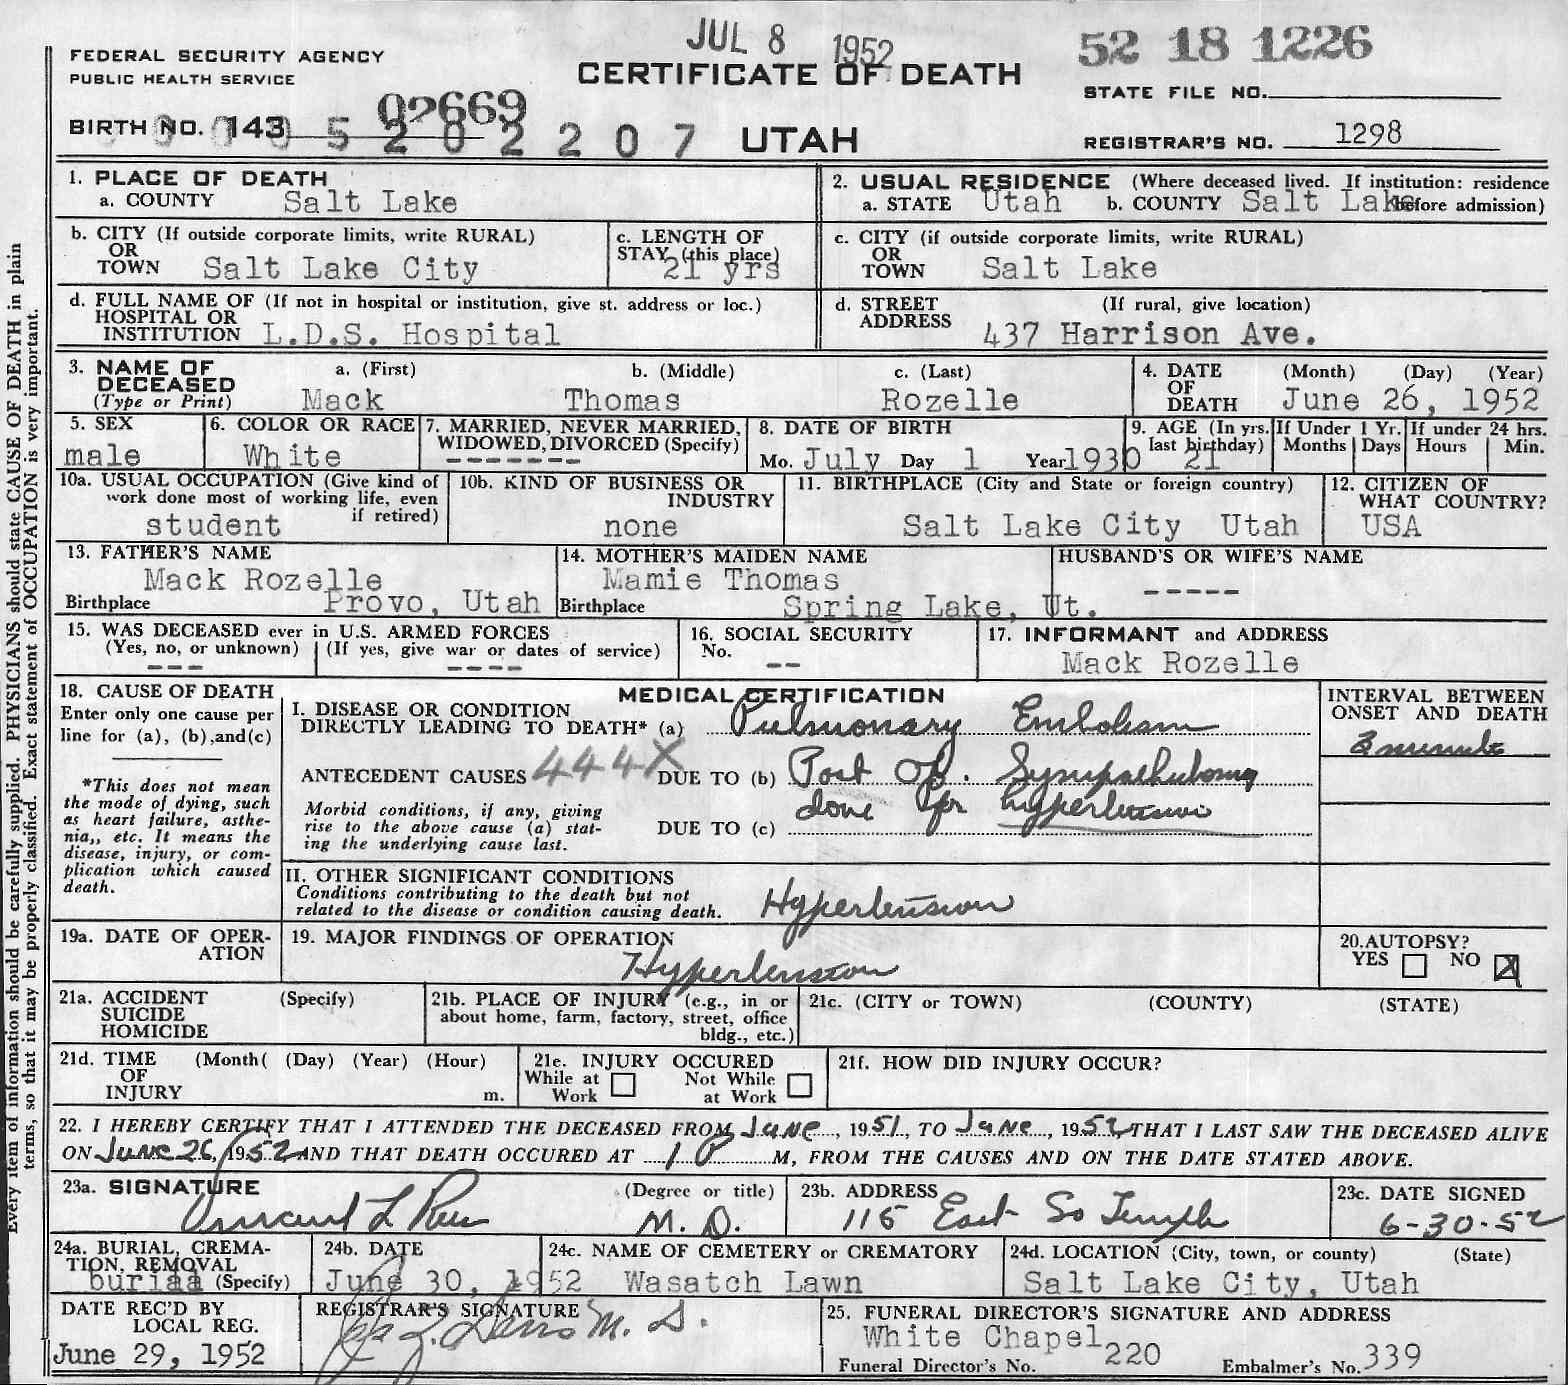 JUL 8 1952
52 18 1226
FEDERAL SECURITY AGENCY
PUBLIC HEALTH SERVICE
CERTIFICATE OF DEATH
STATE FILE NO.
02669
BIRTH NO. 143
5 2 0 2 2 0 7
UTAH
REGISTRAR'S NO. 1298
1. PLACE OF DEATH
a. COUNTY Salt Lake
2. USUAL RESIDENCE (Where deceased lived. If institution: residence before admission)
a. STATE Utah b. COUNTY Salt Lake
b. CITY (If outside corporate limits, write RURAL)
OR
TOWN Salt Lake City
c. LENGTH OF
STAY (this place)
21 yrs
c. CITY (if outside corporate limits, write RURAL)
OR
TOWN Salt Lake
d. FULL NAME OF (If not in hospital or institution, give st. address or loc.)
HOSPITAL OR
INSTITUTION L.D.S. Hospital
d. STREET (If rural, give location)
ADDRESS 437 Harrison Ave.
3. NAME OF a. (First) b. (Middle) c. (Last)
DECEASED
(Type or Print) Mack Thomas Rozelle
4. DATE (Month) (Day) (Year)
OF
DEATH June 26, 1952
5. SEX
male
6. COLOR OR RACE
White
7. MARRIED, NEVER MARRIED,
WIDOWED, DIVORCED (Specify)
-------
8. DATE OF BIRTH
Mo. July Day 1 Year 1930
9. AGE (In yrs. last birthday) 21
If Under 1 Yr.
Months Days
If under 24 hrs.
Hours Min.
10a. USUAL OCCUPATION (Give kind of
work done most of working life, even
if retired)
student
10b. KIND OF BUSINESS OR
INDUSTRY
none
11. BIRTHPLACE (City and State or foreign country)
Salt Lake City Utah
12. CITIZEN OF
WHAT COUNTRY?
USA
13. FATHER'S NAME
Mack Rozelle
Birthplace Provo, Utah
14. MOTHER'S MAIDEN NAME
Mamie Thomas
Birthplace Spring Lake, Ut.
HUSBAND'S OR WIFE'S NAME
-----
15. WAS DECEASED ever in U.S. ARMED FORCES
(Yes, no, or unknown) (If yes, give war or dates of service)
--- ----
16. SOCIAL SECURITY
No.
--
17. INFORMANT and ADDRESS
Mack Rozelle
18. CAUSE OF DEATH
Enter only one cause per
line for (a), (b), and (c)
*This does not mean
the mode of dying, such
as heart failure, asthe-
nia,, etc. It means the
disease, injury, or com-
plication which caused
death.
MEDICAL CERTIFICATION
I. DISEASE OR CONDITION
DIRECTLY LEADING TO DEATH* (a) Pulmonary Embolism
ANTECEDENT CAUSES 444X DUE TO (b) Post Op. Sympathectomy
done for hypertension
Morbid conditions, if any, giving
rise to the above cause (a) stat-
ing the underlying cause last.
DUE TO (c)
INTERVAL BETWEEN
ONSET AND DEATH
3 minute
II. OTHER SIGNIFICANT CONDITIONS
Conditions contributing to the death but not
related to the disease or condition causing death. Hypertension
19a. DATE OF OPER-
ATION
19. MAJOR FINDINGS OF OPERATION
Hypertension
20. AUTOPSY?
YES NO X
21a. ACCIDENT (Specify)
SUICIDE
HOMICIDE
21b. PLACE OF INJURY (e.g., in or
about home, farm, factory, street, office
bldg., etc.)
21c. (CITY or TOWN) (COUNTY) (STATE)
21d. TIME (Month( (Day) (Year) (Hour)
OF
INJURY m.
21e. INJURY OCCURED
While at Work Not While at Work
21f. HOW DID INJURY OCCUR?
22. I HEREBY CERTIFY THAT I ATTENDED THE DECEASED FROM June, 1951, TO June, 1952, THAT I LAST SAW THE DECEASED ALIVE
ON June 26, 1952 AND THAT DEATH OCCURED AT 1 P M, FROM THE CAUSES AND ON THE DATE STATED ABOVE.
23a. SIGNATURE (Degree or title)
L M. D.
23b. ADDRESS
115 East So Temple
23c. DATE SIGNED
6-30-52
24a. BURIAL, CREMA-
TION, REMOVAL
(Specify)
24b. DATE
June 30, 1952
24c. NAME OF CEMETERY or CREMATORY
Wasatch Lawn
24d. LOCATION (City, town, or county) (State)
Salt Lake City, Utah
DATE REC'D BY
LOCAL REG.
June 29, 1952
REGISTRAR'S SIGNATURE
M. D.
25. FUNERAL DIRECTOR'S SIGNATURE AND ADDRESS
White Chapel
Funeral Director's No. 220 Embalmer's No. 339
Every item of information should be carefully supplied. PHYSICIANS should state CAUSE OF DEATH in plain
terms, so that it may be properly classified. Exact statement of OCCUPATION is very important.